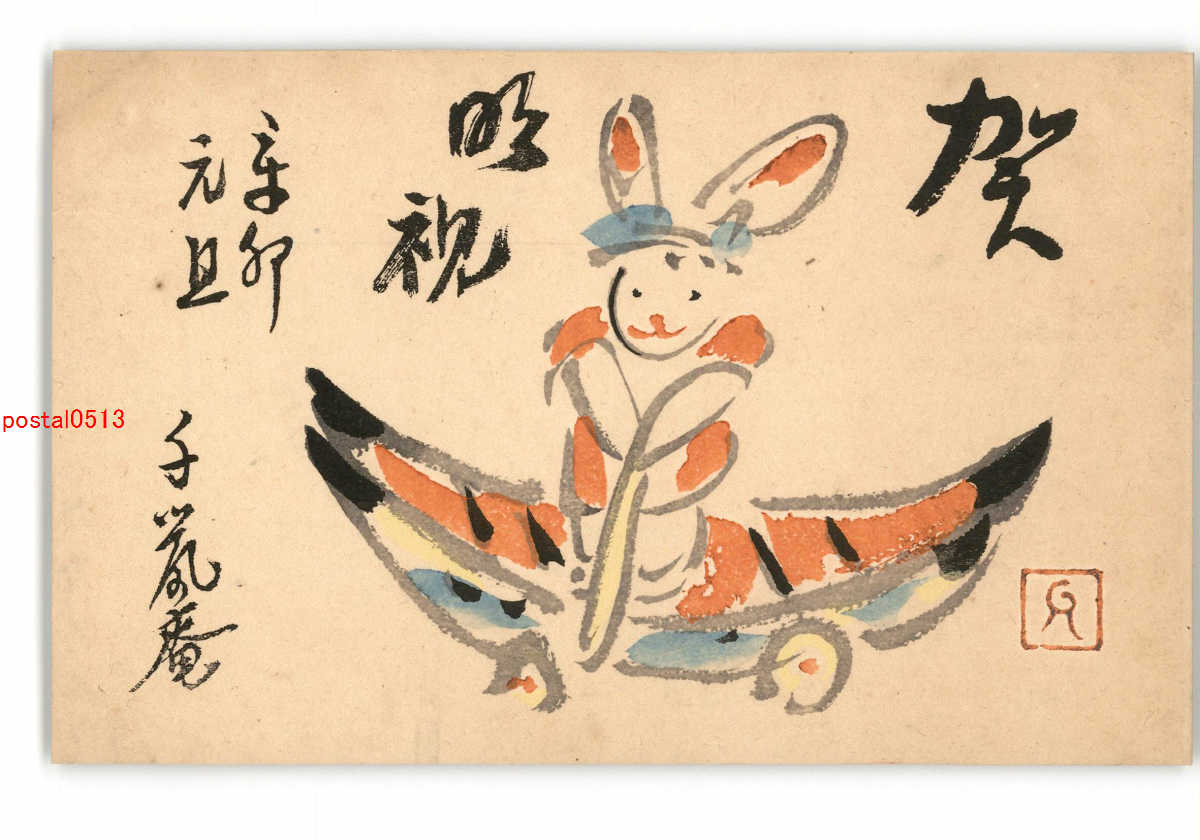 賀
明
視
辛卯
元旦
千嵐庵
postal0513